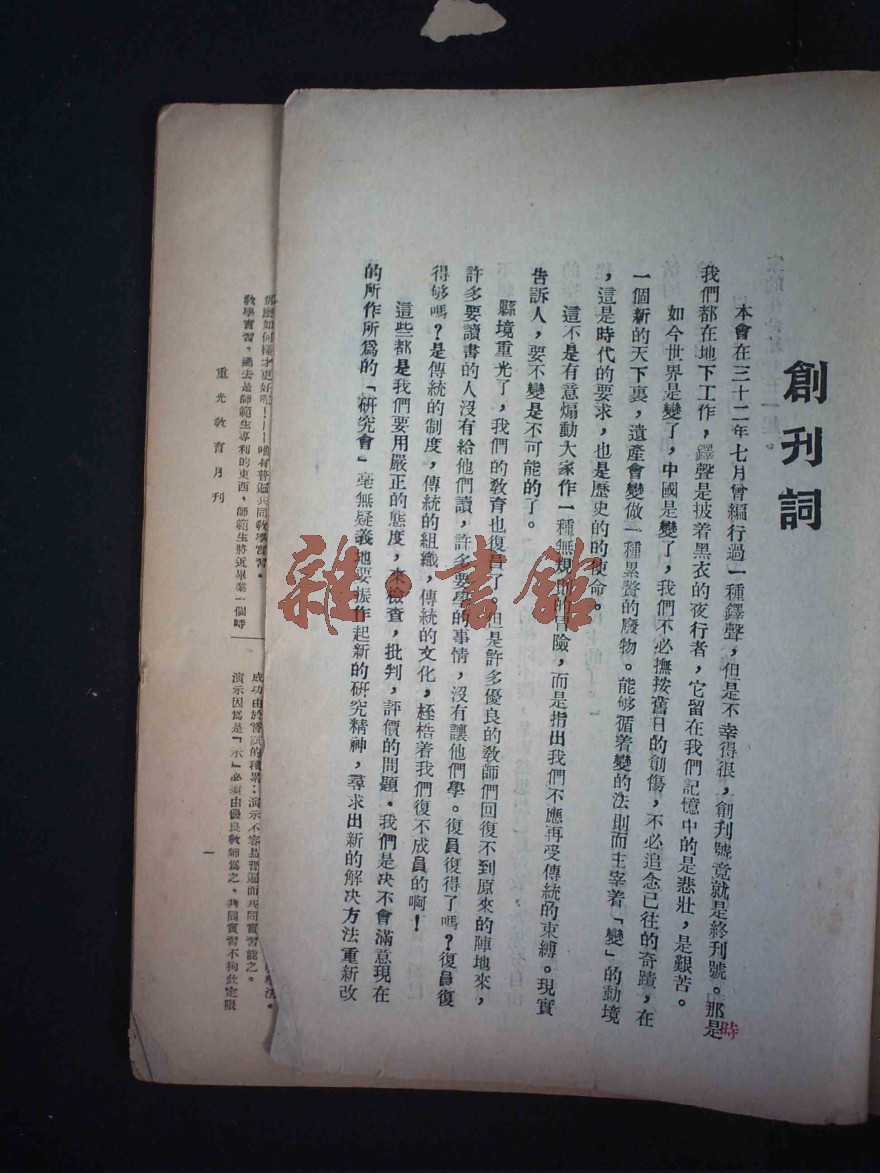 創刊詞
本會在三十二年七月曾編行過一種鐸聲，但是不幸得很，創刊號竟就是終刊號。那是
時
我們都在地下工作，鐸聲是披着黑衣的夜行者，它留在我們記憶中的是悲壯，是艱苦。
如今世界是變了，中國是變了，我們不必撫按舊日的創傷，不必追念已往的奇蹟，在
一個新的天下裏，遺產會變做一種累贅的廢物。能够循着變的法則而主宰着「變」的動境
，這是時代的要求，也是歷史的的使命。
這不是有意煽動大家作一種無規則的冒險，而是指出我們不應再受傳統的束縛。現實
告訴人，要不變是不可能的了。
縣境重光了，我們的敎育也復員了，但是許多優良的敎師們回復不到原來的陣地來，
許多要讀書的人沒有給他們讀，許多要學的事情，沒有讓他們學。復員復得了嗎？復員復
得够嗎？是傳統的制度，傳統的組織，傳統的文化，桎梏着我們復不成員的啊！
這些都是我們要用嚴正的態度，來檢查，批判，評價的問題。我們是决不會滿意現在
的所作所爲的「硏究會」毫無疑義地要振作起新的硏究精神，尋求出新的解决方法重新改
雜·書館
那麽如何樣才更好呢！——唯有普遍共同敎學實習。
敎學實習，過去是師範生專利的東西，師範生將近畢業一個時
重光敎育月刊
法。
成功由於嘗試的積累：演示不容易普遍而共同實習能之。
演示因爲是「示」必須由優良敎師爲之，共同實習不拘此定限
一